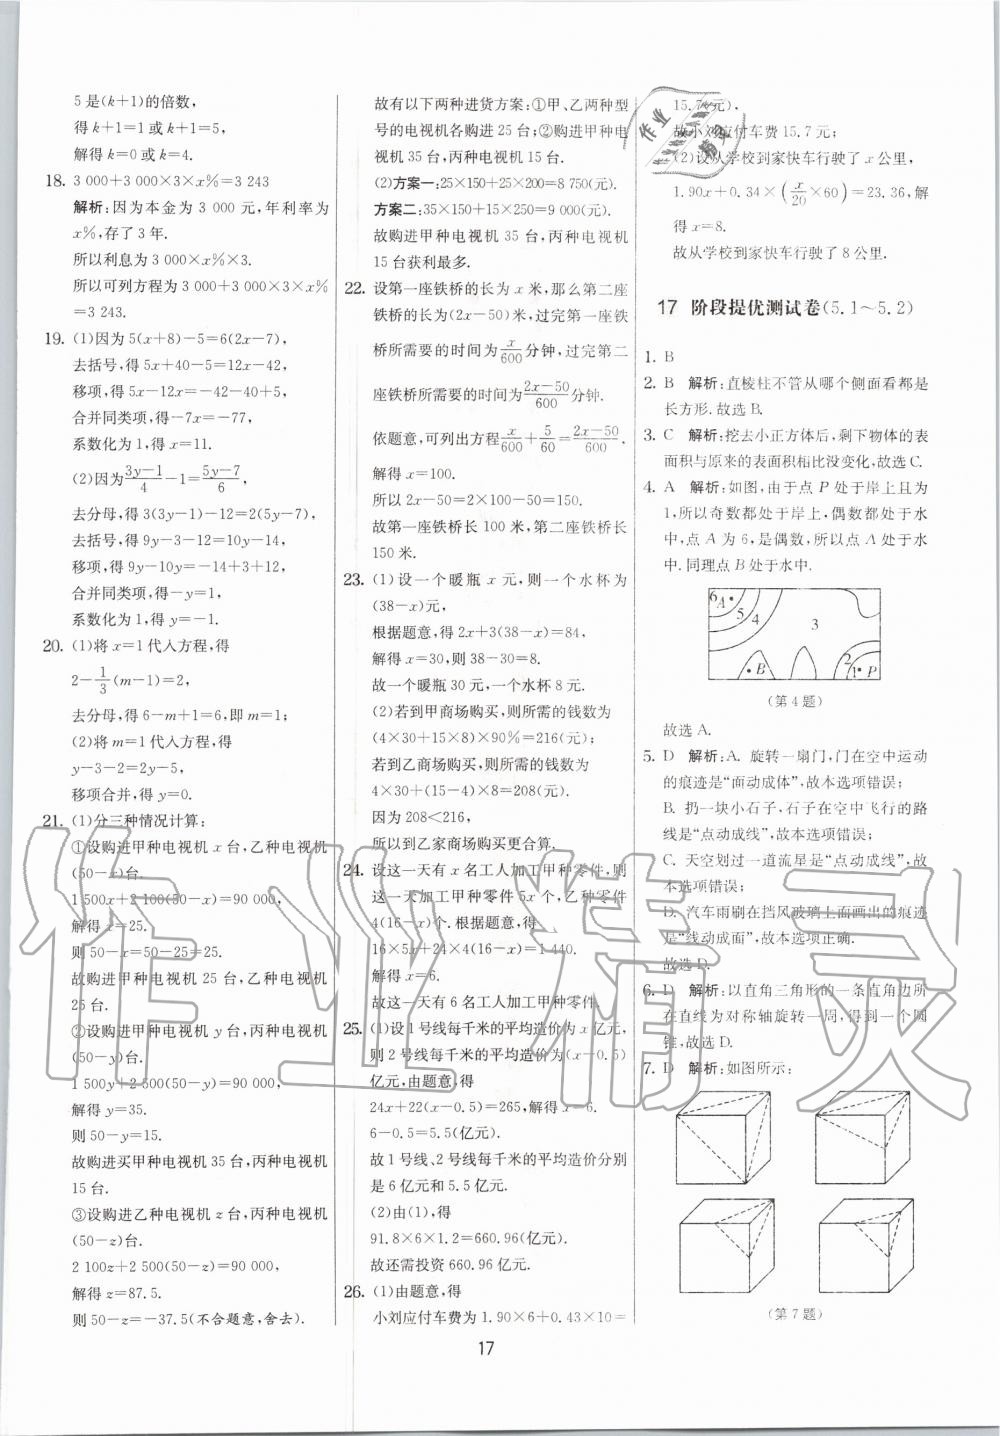 5是(k+1)的倍数,
得k+1=1或k+1=5,
解得k=0或k=4.
18. 3 000+3 000×3×x%=3 243
解析:因为本金为3 000元,年利率为
x%,存了3年.
所以利息为3 000×x%×3.
所以可列方程为3 000+3 000×3×x%
=3 243.
19. (1)因为5(x+8)-5=6(2x-7),
去括号,得5x+40-5=12x-42,
移项,得5x-12x=-42-40+5,
合并同类项,得-7x=-77,
系数化为1,得x=11.
(2)因为(3y-1)/4-1=(5y-7)/6,
去分母,得3(3y-1)-12=2(5y-7),
去括号,得9y-3-12=10y-14,
移项,得9y-10y=-14+3+12,
合并同类项,得-y=1,
系数化为1,得y=-1.
20. (1)将x=1代入方程,得
2-1/3(m-1)=2,
去分母,得6-m+1=6,即m=1;
(2)将m=1代入方程,得
y-3-2=2y-5,
移项合并,得y=0.
21. (1)分三种情况计算:
①设购进甲种电视机x台,乙种电视机
(50-x)台.
1 500x+2 100(50-x)=90 000,
解得x=25.
则50-x=50-25=25.
故购进甲种电视机25台,乙种电视机
25台.
②设购进甲种电视机y台,丙种电视机
(50-y)台.
1 500y+2 500(50-y)=90 000,
解得y=35.
则50-y=15.
故购进买甲种电视机35台,丙种电视机
15台.
③设购进乙种电视机z台,丙种电视机
(50-z)台.
2 100z+2 500(50-z)=90 000,
解得z=87.5.
则50-z=-37.5(不合题意,舍去).
故有以下两种进货方案:①甲、乙两种型
号的电视机各购进25台;②购进甲种电
视机35台,丙种电视机15台.
(2)方案一:25×150+25×200=8 750(元).
方案二:35×150+15×250=9 000(元).
故购进甲种电视机35台,丙种电视机
15台获利最多.
22. 设第一座铁桥的长为x米,那么第二座
铁桥的长为(2x-50)米,过完第一座铁
桥所需要的时间为x/600分钟,过完第二
座铁桥所需要的时间为(2x-50)/600分钟.
依题意,可列出方程x/600+5/60=(2x-50)/600.
解得x=100.
所以2x-50=2×100-50=150.
故第一座铁桥长100米,第二座铁桥长
150米.
23. (1)设一个暖瓶x元,则一个水杯为
(38-x)元,
根据题意,得2x+3(38-x)=84,
解得x=30,则38-30=8.
故一个暖瓶30元,一个水杯8元.
(2)若到甲商场购买,则所需的钱数为
(4×30+15×8)×90%=216(元);
若到乙商场购买,则所需的钱数为
4×30+(15-4)×8=208(元).
因为208<216,
所以到乙家商场购买更合算.
24. 设这一天有x名工人加工甲种零件,则
这一天加工甲种零件5x个,乙种零件
4(16-x)个.根据题意,得
16×5x+24×4(16-x)=1 440.
解得x=6.
故这一天有6名工人加工甲种零件.
25. (1)设1号线每千米的平均造价为x亿元,
则2号线每千米的平均造价为(x-0.5)
亿元,由题意,得
24x+22(x-0.5)=265,解得x=6.
6-0.5=5.5(亿元).
故1号线、2号线每千米的平均造价分别
是6亿元和5.5亿元.
(2)由(1),得
91.8×6×1.2=660.96(亿元).
故还需投资660.96亿元.
26. (1)由题意,得
小刘应付车费为1.90×6+0.43×10=
15.7(元),
故小刘应付车费15.7元;
(2)设从学校到家快车行驶了x公里,
1.90x+0.34×(x/20×60)=23.36,解
得x=8.
故从学校到家快车行驶了8公里.
17 阶段提优测试卷(5.1～5.2)
1. B
2. B 解析:直棱柱不管从哪个侧面看都是
长方形.故选B.
3. C 解析:挖去小正方体后,剩下物体的表
面积与原来的表面积相比没变化,故选C.
4. A 解析:如图,由于点P处于岸上且为
1,所以奇数都处于岸上,偶数都处于水
中,点A为6,是偶数,所以点A处于水
中.同理点B处于水中.
6 A 5 4 3 B 2 1 P
(第4题)
故选A.
5. D 解析:A. 旋转一扇门,门在空中运动
的痕迹是“面动成体”,故本选项错误;
B. 扔一块小石子,石子在空中飞行的路
线是“点动成线”,故本选项错误;
C. 天空划过一道流星是“点动成线”,故
本选项错误;
D. 汽车雨刷在挡风玻璃上面画出的痕迹
是“线动成面”,故本选项正确.
故选D.
6. D 解析:以直角三角形的一条直角边所
在直线为对称轴旋转一周,得到一个圆
锥,故选D.
7. D 解析:如图所示:
(第7题)
17
作业精灵
作业
精灵